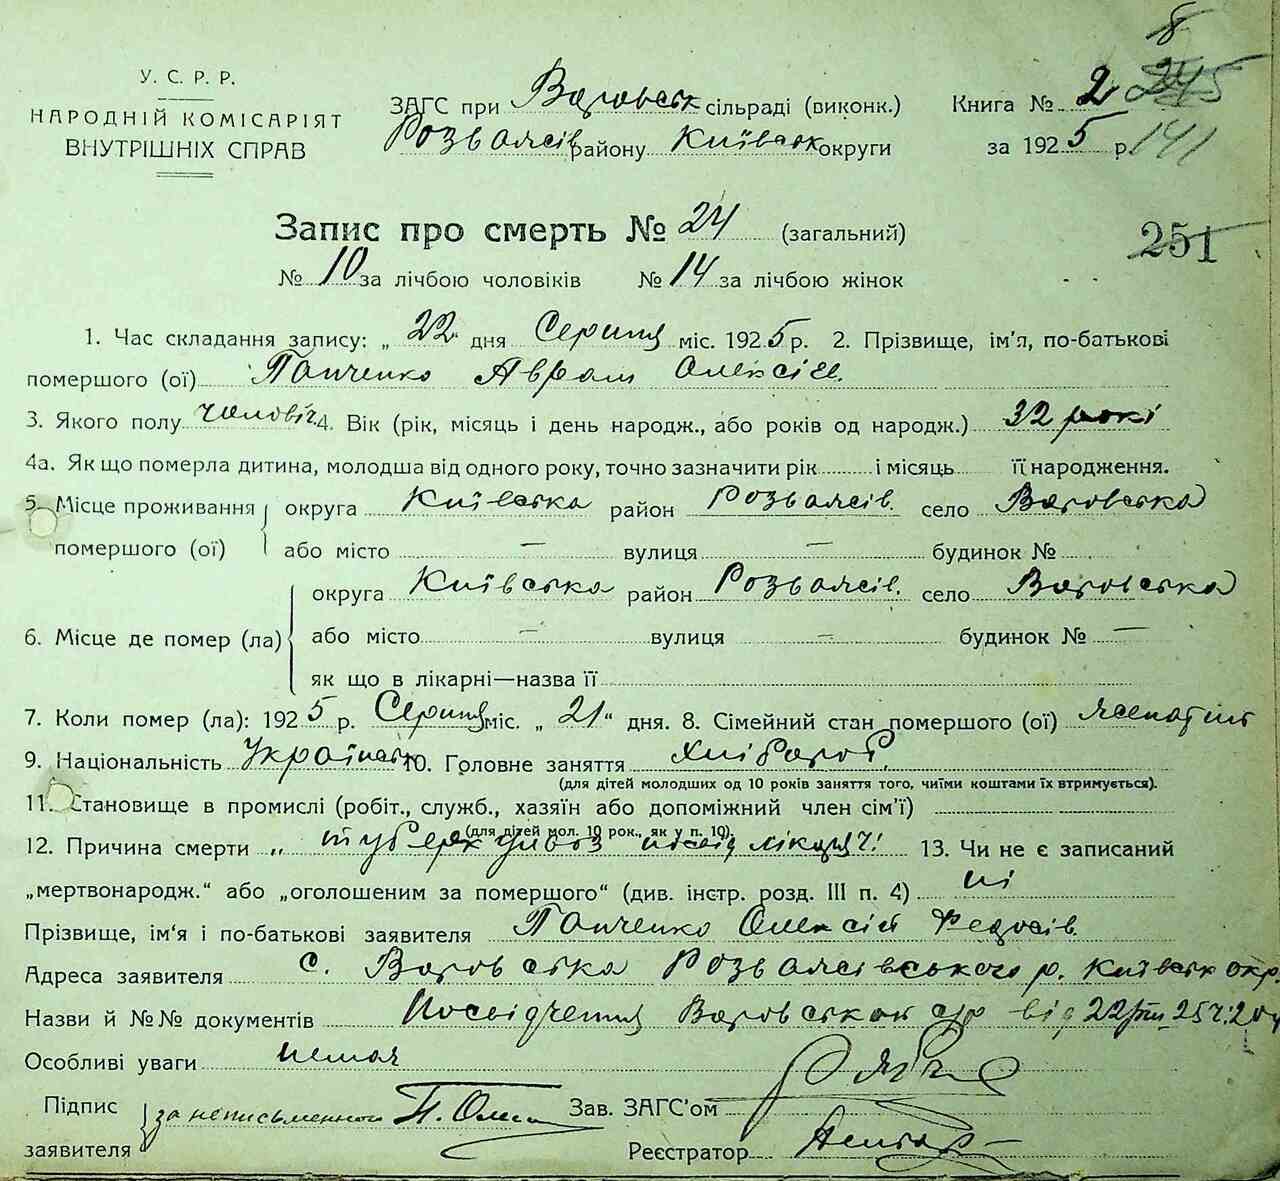 У. С. Р. Р.
НАРОДНІЙ КОМІСАРІЯТ
ВНУТРІШНІХ СПРАВ
ЗАГС при Воровськ сільраді (виконк.)
Розважів району Київськ округи
Книга № 2 245
за 1925 р. 141
Запис про смерть № 24 (загальний)
251
№ 10 за лічбою чоловіків № 14 за лічбою жінок
1. Час складання запису: „22" дня Серпня міс. 1925 р. 2. Прізвище, ім'я, по-батькові
помершого (ої) Панченко Аврам Олексів.
3. Якого полу чоловіч. 4. Вік (рік, місяць і день народж., або років од народж.) 32 рокі
4а. Як що померла дитина, молодша від одного року, точно зазначити рік і місяць її народження.
5. Місце проживання округа Київська район Розважів. село Воровська
помершого (ої) або місто — вулиця — будинок №
округа Київська район Розважів. село Воровська
6. Місце де помер (ла) або місто — вулиця — будинок № —
як що в лікарні—назва її
7. Коли помер (ла): 1925 р. Серпня міс. „21" дня. 8. Сімейний стан помершого (ої)
9. Національність Українець 10. Головне заняття хлібороб.
(для дітей молодших од 10 років заняття того, чиїми коштами їх втримується).
11. Становище в промислі (робіт., служб., хазяїн або допоміжний член сім'ї)
(для дітей мол. 10 рок., як у п. 10).
12. Причина смерти „туберкульоз" 13. Чи не є записаний
„мертвонародж." або „оголошеним за помершого" (див. інстр. розд. III п. 4) ні
Прізвище, ім'я і по-батькові заявителя Панченко Олексій Федосів.
Адреса заявителя с. Воровська Розважівського р. Київськ окр.
Назви й №№ документів Посвідчення Воровськой с/р від 22/VIII 25 ч. 204
Особливі уваги немає
Підпис за неписьменного П. Зав. ЗАГС'ом
заявителя Реєстратор